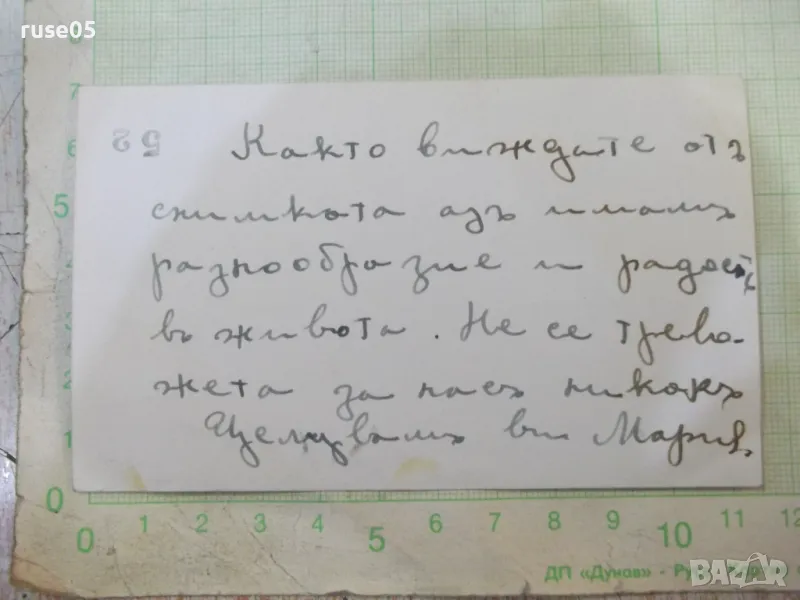 ruse05
52 Както виждате отъ
снимката азъ имамъ
разнообразие и радость
въ живота. Не се трево-
жета за насъ никакъ
Целувамъ ви Мария
7
6
5
5
2
1
0
0 1 2 3 4 5 6 7 8 9 10 11 12
ДП «Дунав» - Ру
BAZAR